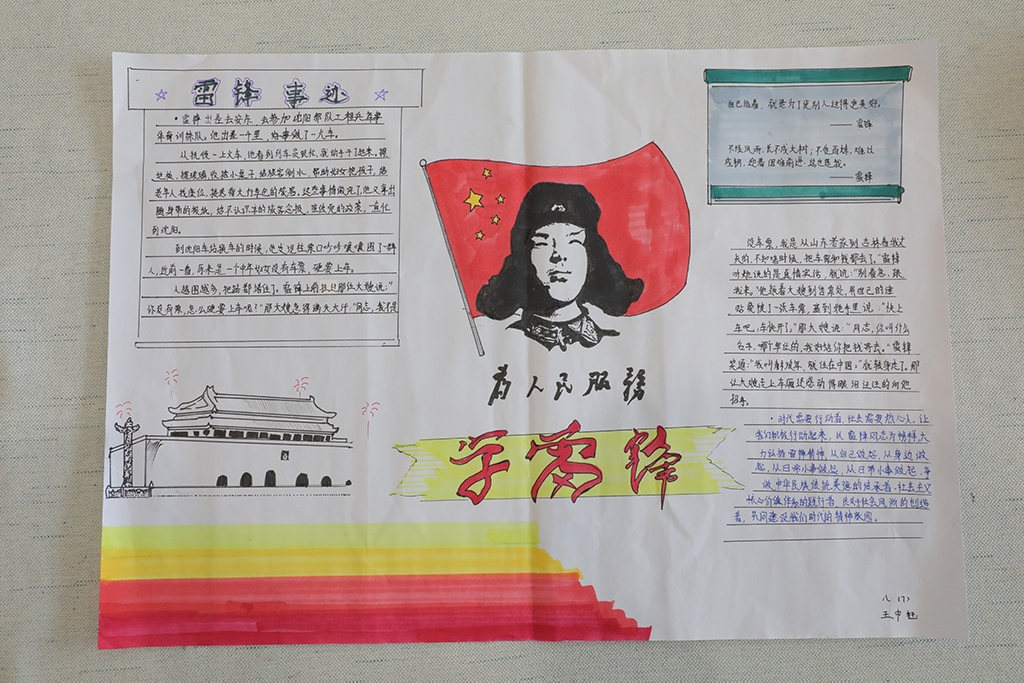 雷锋事迹
·雷锋出差去安东，去参加沈阳部队工程兵军事
体育训练队。他出差一千里，好事做了一火车。
从抚顺一上火车，他看到列车员很忙，就动手干了起来。擦
地板，擦玻璃，收拾小桌子，给旅客倒水，帮助妇女抱孩子，给
老年人找座位，接送背大行李包的旅客。这些事情做完了，他又拿出
随身带的报纸，给不认识字的旅客念报，宣传党的政策，一直忙
到沈阳。
到沈阳车站换车的时候，他发现检票口吵吵嚷嚷围了一群
人，近前一看，原来是一个中年妇女没有车票，硬要上车。
人越围越多，把路都堵住了。雷锋上前拉过那位大嫂说："
你没有票，怎么硬要上车呢！"那大嫂急得满头大汗："同志，我不是
自己活着，就是为了使别人过得更美好。
——雷锋
不经风雨，长不成大树，不受百炼，难以
成钢。迎着困难前进
——雷锋
为人民服务
学雷锋
没车票，我是从山东老家到吉林看我丈
夫的，不知啥时候，把车票和钱都丢了。"雷锋
听她说的是真情实话，就说："别着急，跟
我来。"他领着大嫂到售票处，用自己的津
贴费买了一张车票，塞到她手里说："快上
车吧，车快开了。"那大嫂说："同志，你叫什么
名字，哪个单位的，我好给你把钱寄去。"雷锋
笑道："我叫解放军，就住在中国。"就转身走了。那
位大嫂走上车厢还感动得眼泪汪汪的向他
招手。
·时代需要行动者，社会需要热心人，让
我们积极行动起来，以雷锋同志为榜样，大
力弘扬雷锋精神，从自己做起，从身边做
起，从日常小事做起，从日常小事做起，争
做中华民族传统美德的传承者，社会主义
核心价值体系的践行者，良好社会风尚的创造
者，共同建设我们时代的精神家园。
八（7）
王中钰